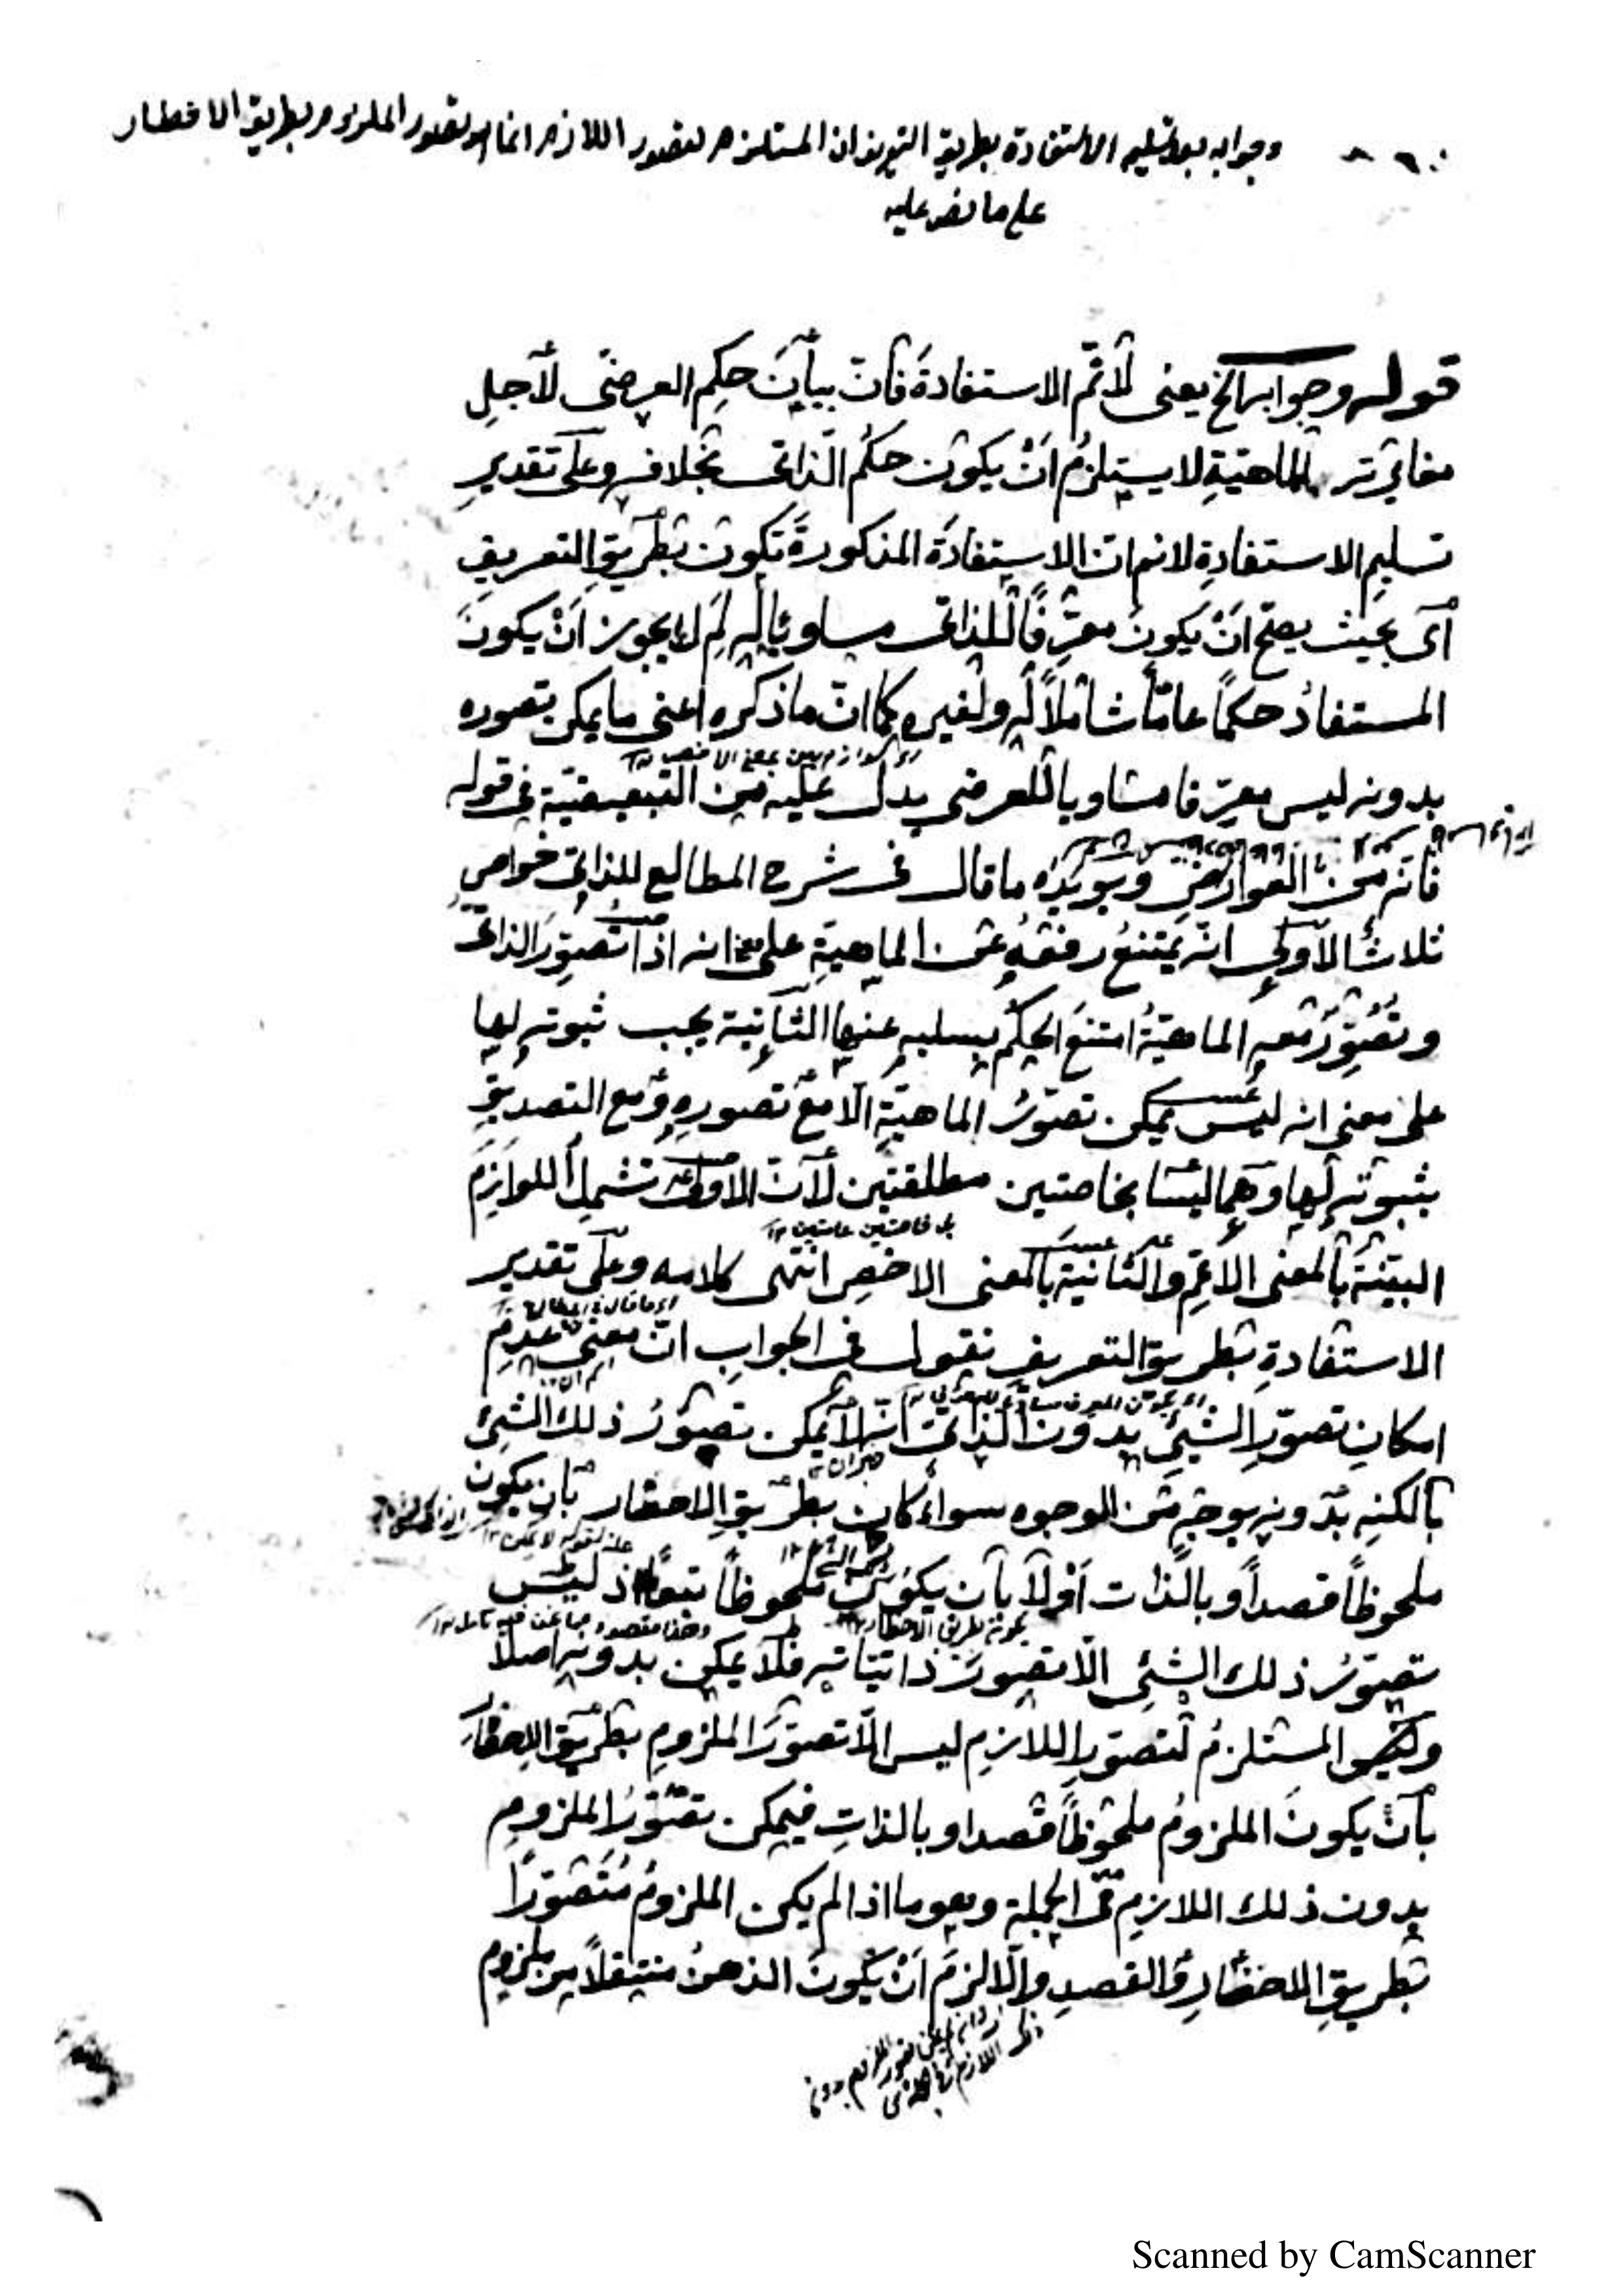 وجوابه بعد تسليم الاستفادة بطريق التعريف ان المستلزم لتصور اللازم انما هو تصور الملزوم بطريق الاخطار
على ما نص عليه
قوله وجوابه الخ يعنى لا نم الاستفادة فان بيان حكم العرضى لاجل
مغايرته للماهية لا يستلزم ان يكون حكم الذاتى بخلافه وعلى تقدير
تسليم الاستفادة لا نم ان الاستفادة المذكورة تكون بطريق التعريف
اى بحيث يصح ان يكون معرفا للذاتى مساويا له لم لا يجوز ان يكون
المستفاد حكما عاما شاملا له ولغيره كما ان ما ذكره اعنى ما يمكن تصوره
بدونه ليس معرفا مساويا للعرضى يدل عليه من التبعيضية فى قوله
فانه من العوارض ويؤيده ما قال فى شرح المطالع للذاتى خواص
ثلاث الاولى انه يمتنع رفعه عن الماهية على معنى انه اذا تصور الذاتى
وتصور معه الماهية امتنع الحكم بسلبه عنها الثانية يجب ثبوته لها
على معنى انه ليس يمكن تصور الماهية الا مع تصوره ومع التصديق
بثبوته لها وهما ليستا بخاصتين مطلقتين لان الاولى تشمل اللوازم
بل خاصتين عامتين ١٢
البينة بالمعنى الاعم والثانية بالمعنى الاخص انتهى كلامه وعلى تقدير
الاستفادة بطريق التعريف نقول فى الجواب ان معنى عدم
امكان تصور الشئ بدون الذاتى انه لا يمكن تصور ذلك الشئ
بالكنه بدونه بوجه من الوجوه سواء كان بطريق الاخطار بان يكون
ملحوظا قصدا وبالذات اولا بان يكون ملحوظا تبعا اذ ليس
تصور ذلك الشئ الا تصور ذاتياته فلا يمكن بدونه اصلا
والمستلزم لتصور اللازم ليس الا تصور الملزوم بطريق الاخطار
بان يكون الملزوم ملحوظا قصدا وبالذات فيمكن تصور الملزوم
بدون ذلك اللازم فى الجملة وهو ما اذا لم يكن الملزوم متصورا
بطريق الاخطار والقصد والا لزم ان يكون الذهن منتقلا من ملزوم
Scanned by CamScanner